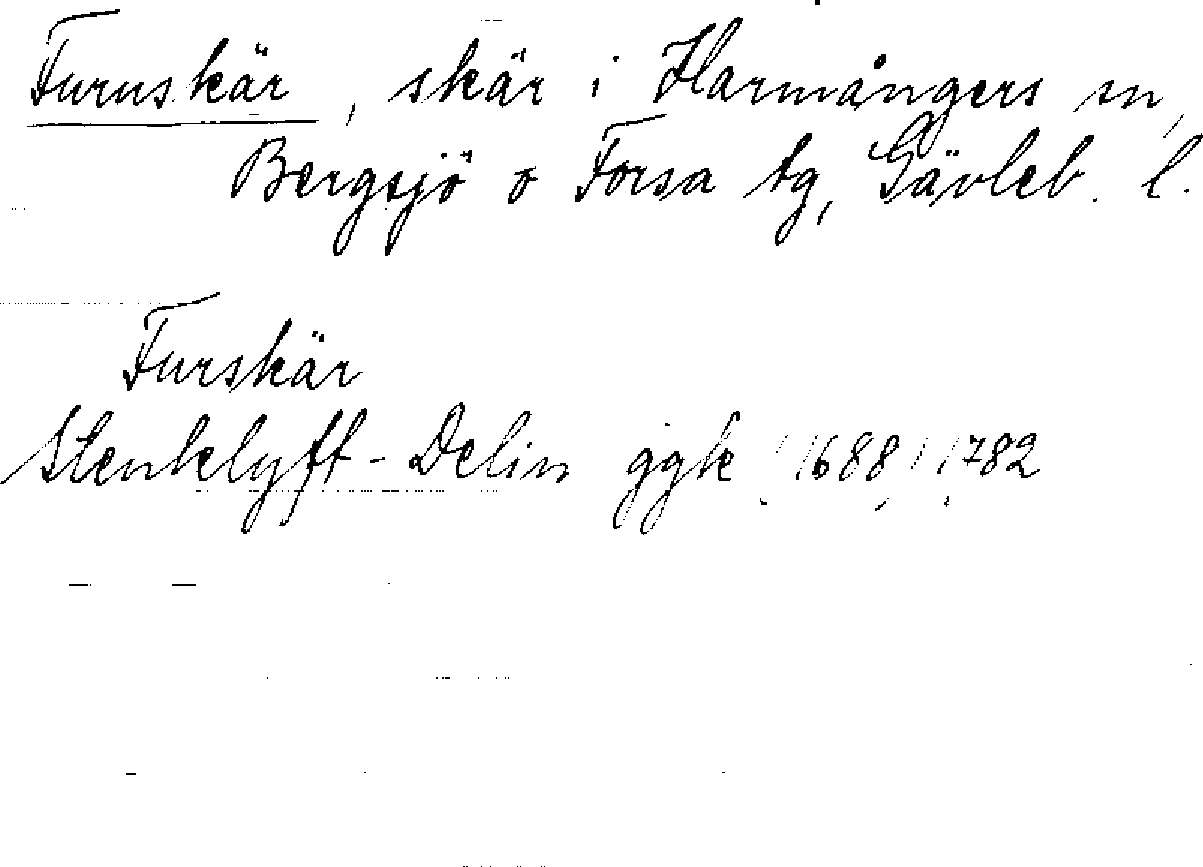 Furuskär, skär i Harmångers sn,
Bergsjö o Forsa tg, Gävleb. l.
Furskär
Stenklyft-Delin ggk (1688) 1782